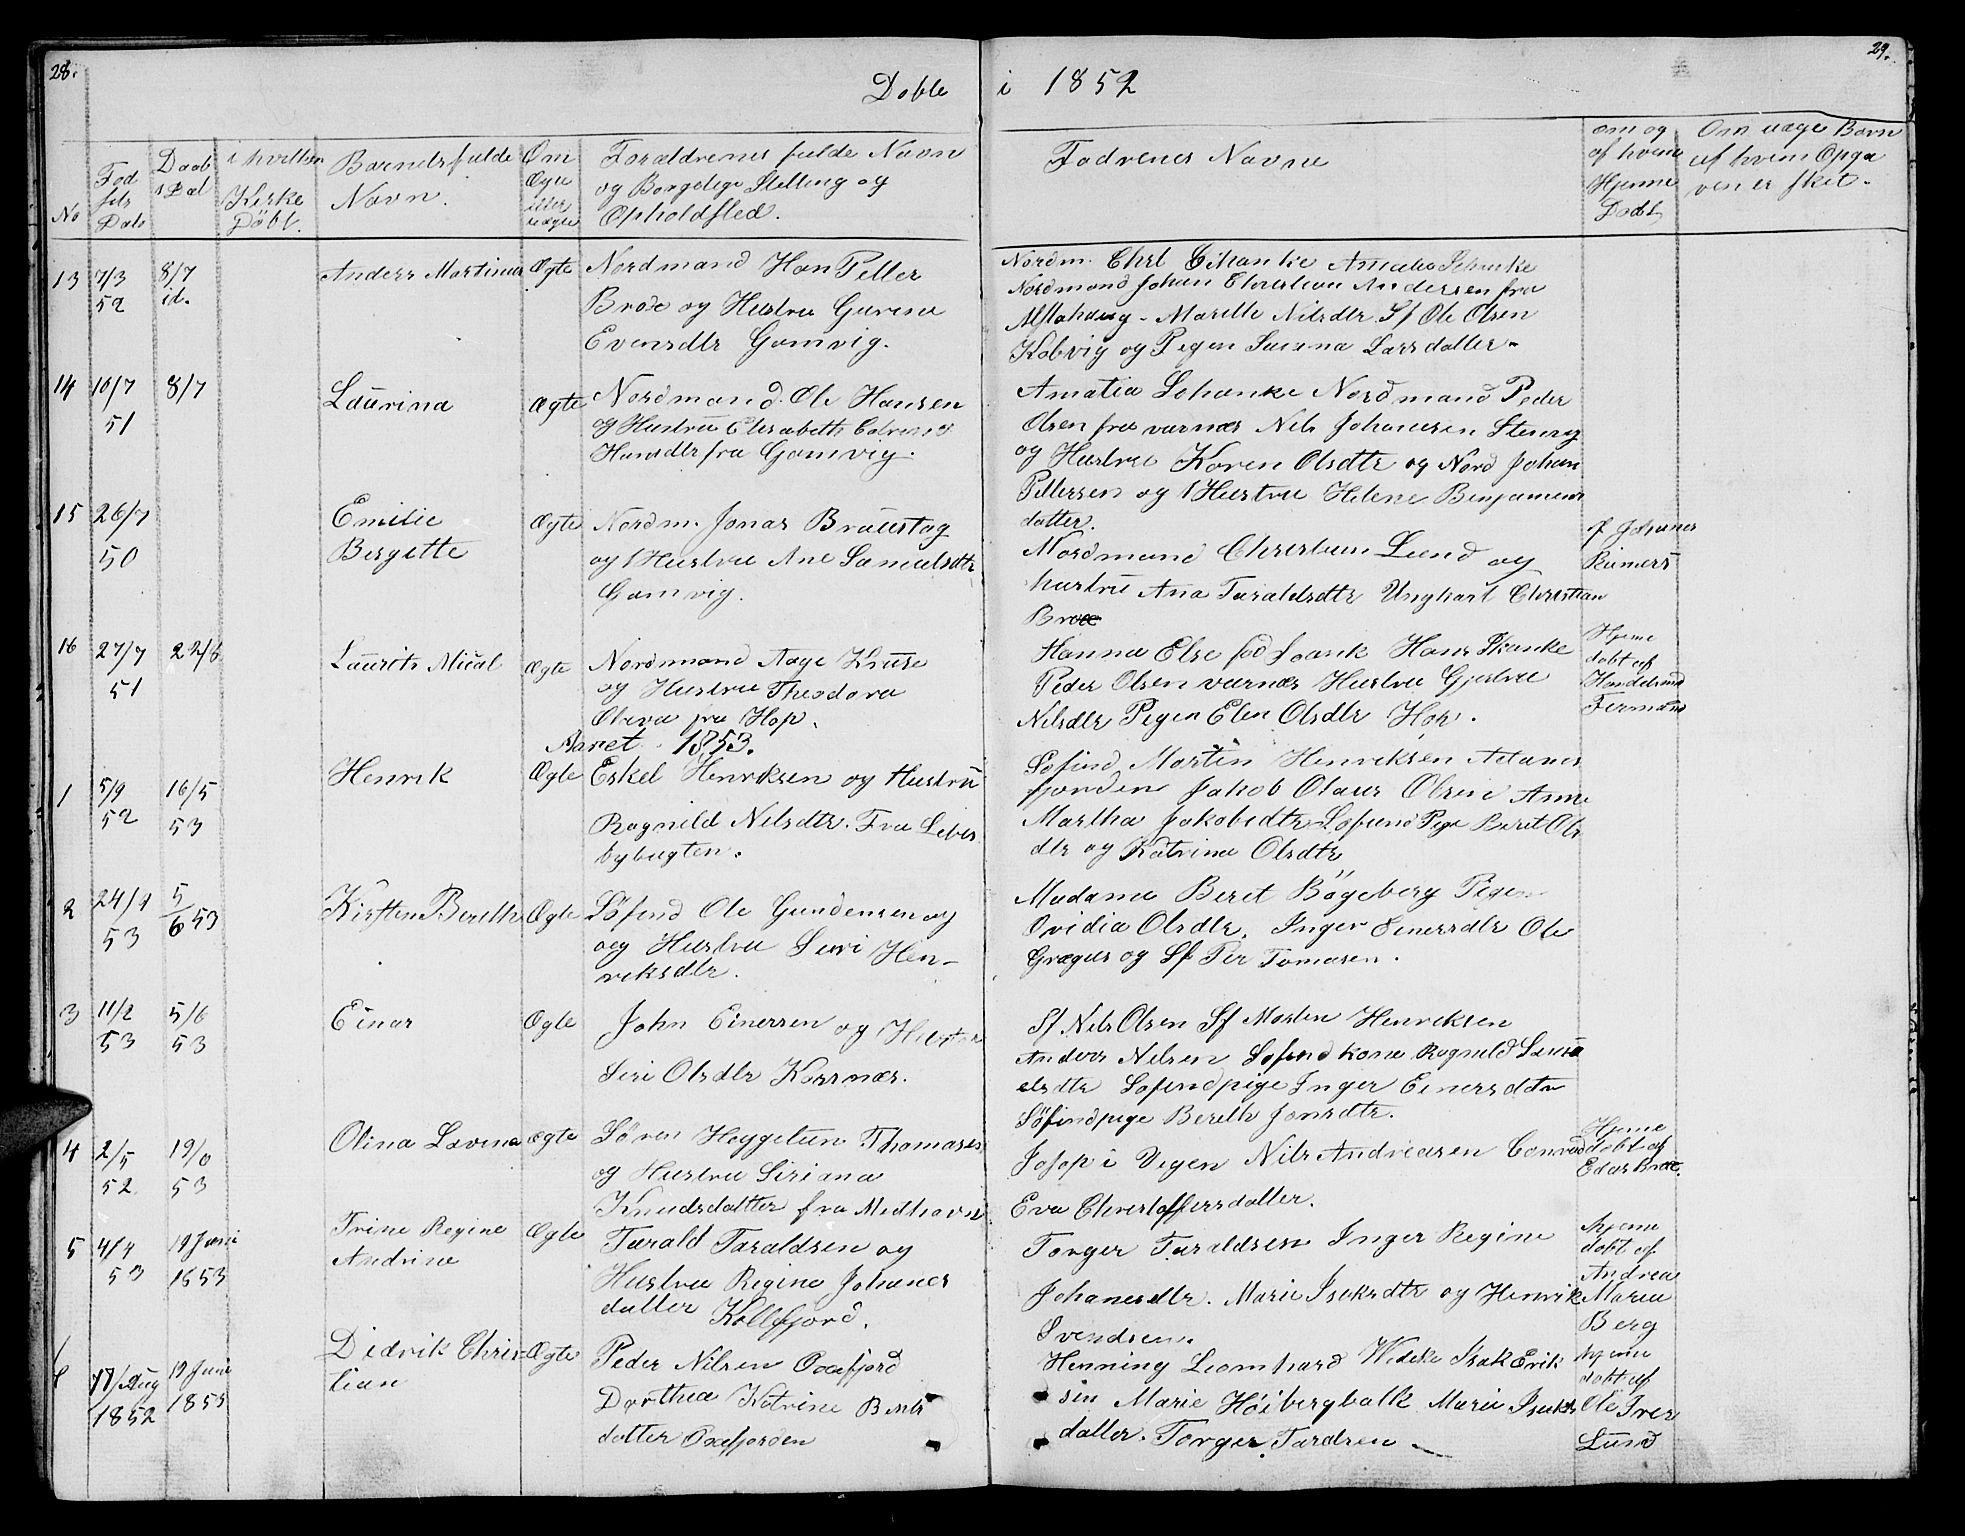 28.
29.
Døbte i 1852
No
Fød
sels
Dato
Daab
s Dat
i hvilken
Kirke
Døbt.
Barnets fulde
Navn.
Om
Ægte
eller
uægte
Forældrenes fulde Navn
og Borgelige Stelling og
Opholdssted.
Fadrenes Navne
om og
af hvem
Hjeme
Døbt
Om uægte Barn
af hvem Opga
ven er skét.
13 7/3 8/7 Anders Martinus Ægte Nordmand Han Petter
52 id.
Broe og Hustru Gurina
Evensdtr Gamvig.
Nordm. Chrl Amalia Schanke
Nordmand Johan Christian Andersen fra
Alstahaug - Marith Nilsdtr. Sf Ole Olsen
Kobvig og Pigen Susena Larsdatter.
14 10/7 8/7 Laurina Ægte Nordmand Ole Hansen
51
og Hustru Elisabeth
Hansdtr fra Gamvig.
Amalia Schanke Nordmand Peder
Olsen fra værnæs Nils Johansen
og Hustru Karen Olsdtr og Nord Johan
Pettersen og Hustru Helene Benjamins
datter.
15 26/7 Emilie Ægte Nordm. Jonas
50 Bergitte og Hustru Ane Samulsdtr
Gamvig.
Nordmand Christian Lund og
hustru Ana Taraldsdtr Ungkarl Christian
Broe
af Johanes
16 27/7 22/8 Laurits Mikal Ægte Nordmand Aage Kruse
51
og Hustru Theodora
Oliva fra Hop.
Hanna Else fød Hans Skanke
Peder Olsen værnæs Hustru
Nilsdtr Pigen Elen Olsdtr Hop.
Hjeme
døbt af
Handelsmd
Aaret 1853.
1 5/9 16/5 Henrik Ægte Eskel Henriksen og Hustru
52 53
Ragnild Nilsdtr. Fra Lebes
bybugten.
Søfind Martin Henriksen
fjorden Jakob Olaus Olsen Anne
Martha Jakobsdtr Søfind Pige Berit Ols
dtr og Katrina Olsdtr
2 24/1 5/6 53 Kirsten Berethe Ægte Søfind Ole Gundersen og
53
og Hustru Siri Hen-
riksdtr.
Madame Beret Bøgeberg Pigen
Ovidia Olsdtr. Inger Einersdtr Ole
Grægus og Sf Per Tomasen.
3 11/2 5/6 Einar Ægte John Einersen og Hustru
53 53
Siri Olsdtr Korsnæs.
Sf Nils Olsen Sf Morten Henriksen
Anders Nilsen Søfind kone Ragnild Samu
elsdtr Søfindpige Inger Einersdtr
Søfindpige Bereth Jonsdtr.
4 2/5 19/6 Olina Lovina Ægte Søren Heggelun Thomases
52 53
og Hustru Siriana
Knudsdatter fra Midhavn
Josop i Vegen Nils Andreasen Conrad
Eva Christoffersdatter.
Hjeme
døbt af
Edas Broe.
5 4/4 19 Juni Trine Regine Ægte Tarald Taraldsen og
53 1853 Andrine
Hustru Regine Johanes
datter Kollefjord.
Torger Taraldsen Inger Regine
Johanesdtr. Marie Isaksdtr og Henrik
Svendsen.
hjeme
døbt af
Andrea
Maria
Berg
6 17/Aug 19 Juni Didrik Chris= Ægte Peder Nilsen Oxefjord
1852 1853 tian
Dorthea Katrine Bents
datter Oxefjorden
Henning Leonhard Wideke Isak Erik
sen Marie Høibergbalk Marie Isaks
datter. Torger Tardsen
hjeme
døbt af
Ole Iver
Lund